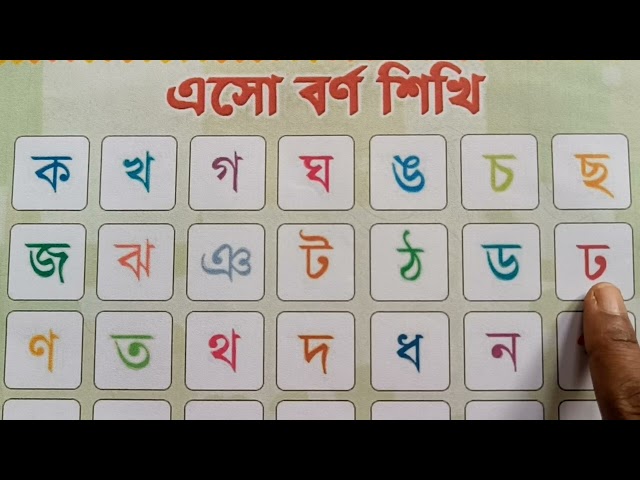 এসো বর্ণ শিখি
ক খ গ ঘ ঙ চ ছ
জ ঝ ঞ ট ঠ ড ঢ
ণ ত থ দ ধ ন